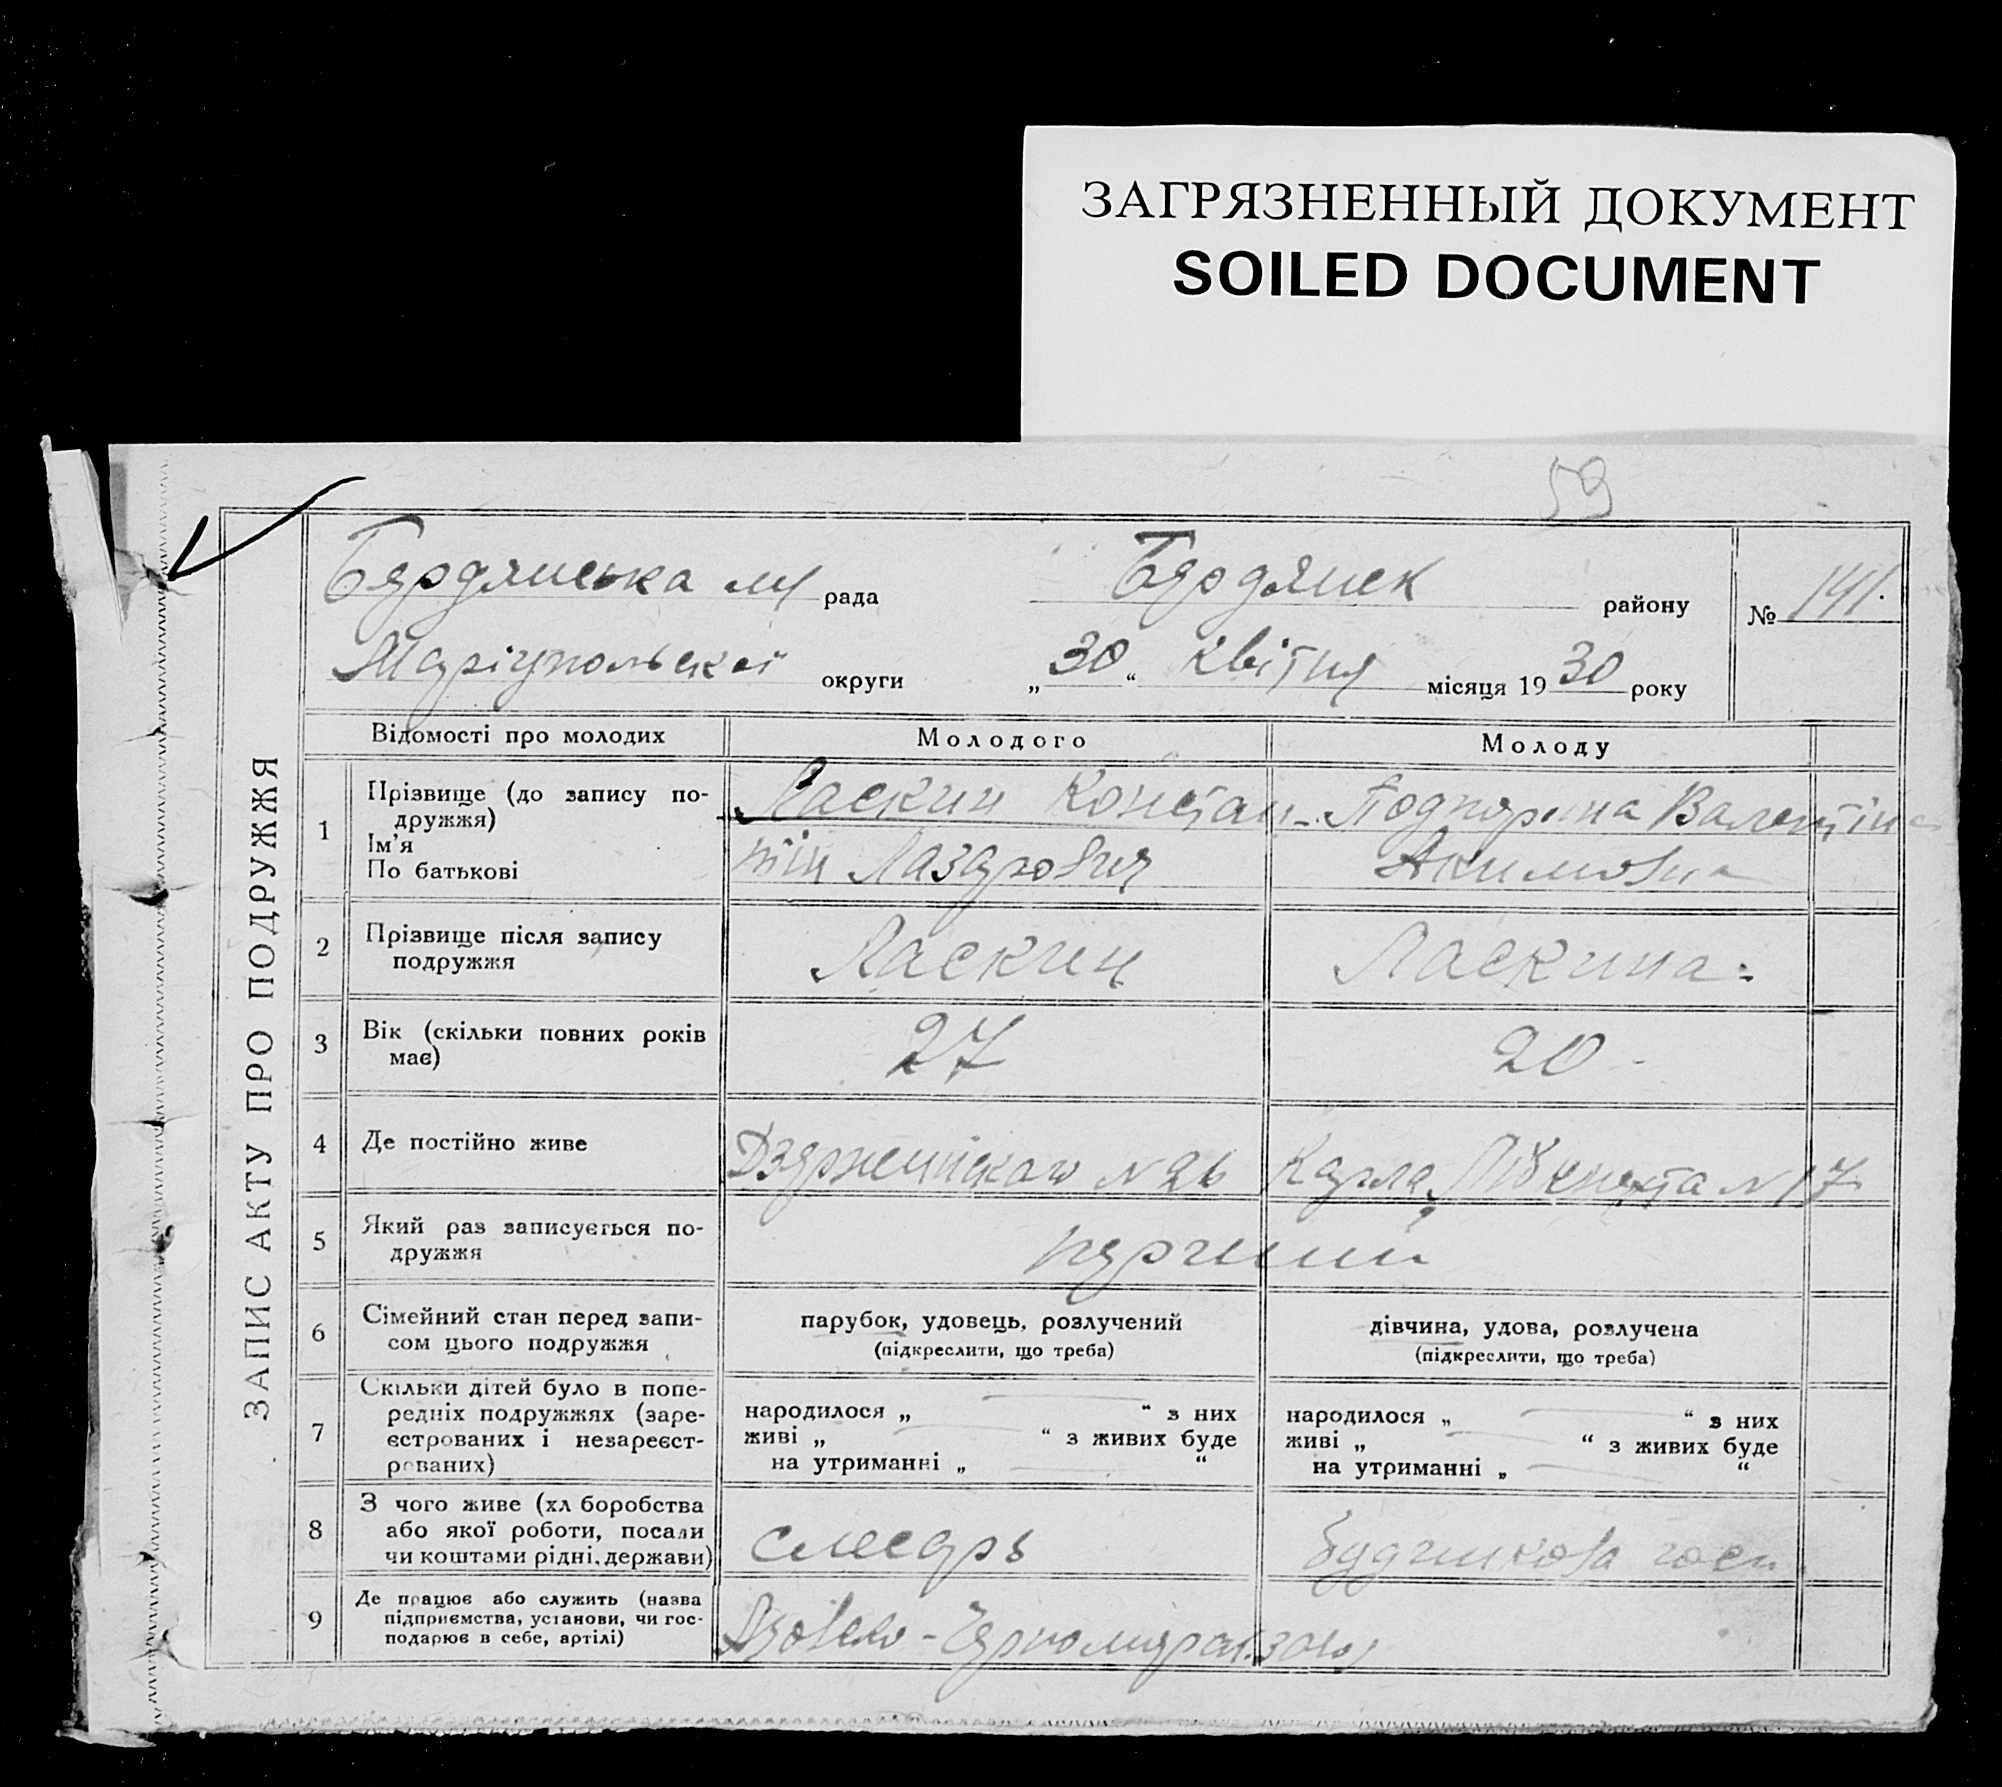 ЗАГРЯЗНЕННЫЙ ДОКУМЕНТ
SOILED DOCUMENT
59
ЗАПИС АКТУ ПРО ПОДРУЖЖЯ
Бердянська м рада Бердянск району № 141.
Маріупольскої округи „30“ квітня місяця 1930 року
Відомості про молодих Молодого Молоду
1 Прізвище (до запису по-
дружжя)
Ім'я
По батькові
Ласкин Констан-
тін Лазарович
Валентіна
Акимовна
2 Прізвище після запису
подружжя
Ласкин
Ласкина
3 Вік (скільки повних років
має)
27
20
4 Де постійно живе
Дзержинскаго №26
Карла Лібкнехта №17
5 Який раз записується по-
дружжя
перший
6 Сімейний стан перед запи-
сом цього подружжя
парубок, удовець, розлучений
(підкреслити, що треба)
дівчина, удова, розлучена
(підкреслити, що треба)
7 Скільки дітей було в попе-
редніх подружжях (заре-
єстрованих і незареєст-
рованих)
народилося „ “ з них
живі „ “ з живих буде
на утриманні „ “
народилося „ “ з них
живі „ “ з живих буде
на утриманні „ “
8 З чого живе (хліборобства
або якої роботи, посади
чи коштами рідні, держави)
слесарь
9 Де працює або служить (назва
підприємства, установи, чи гос-
подарює в себе, артілі)
Азовско-Черномор